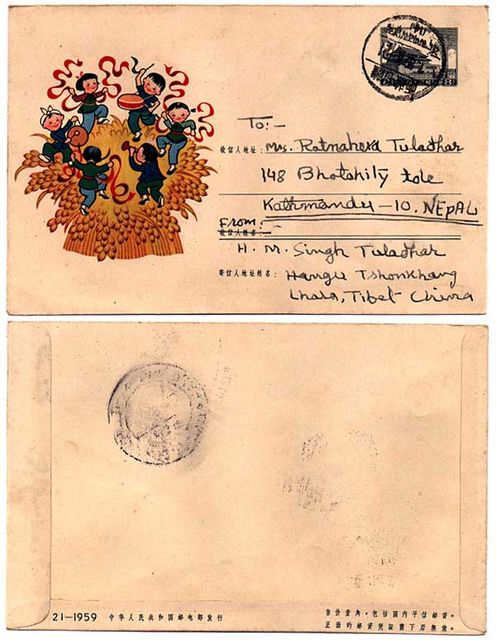 To:-
收信人地址：Mrs. Ratnahera Tuladhar
148 Bhotahity tole
Kathmandu-10. NEPAL
From:-
收信人姓名：
H. M. Singh Tuladhar
寄信人地址姓名：Hangu Tshonkhang
Lhasa, Tibet China
21-1959 中华人民共和国邮电部发行
售价壹角，包括国内平信邮资。
正面的邮资凭证剪下后无效。